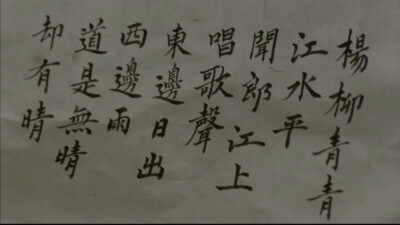 楊柳青青
江水平
聞郎江上
唱歌聲
東邊日出
西邊雨
道是無晴
却有晴